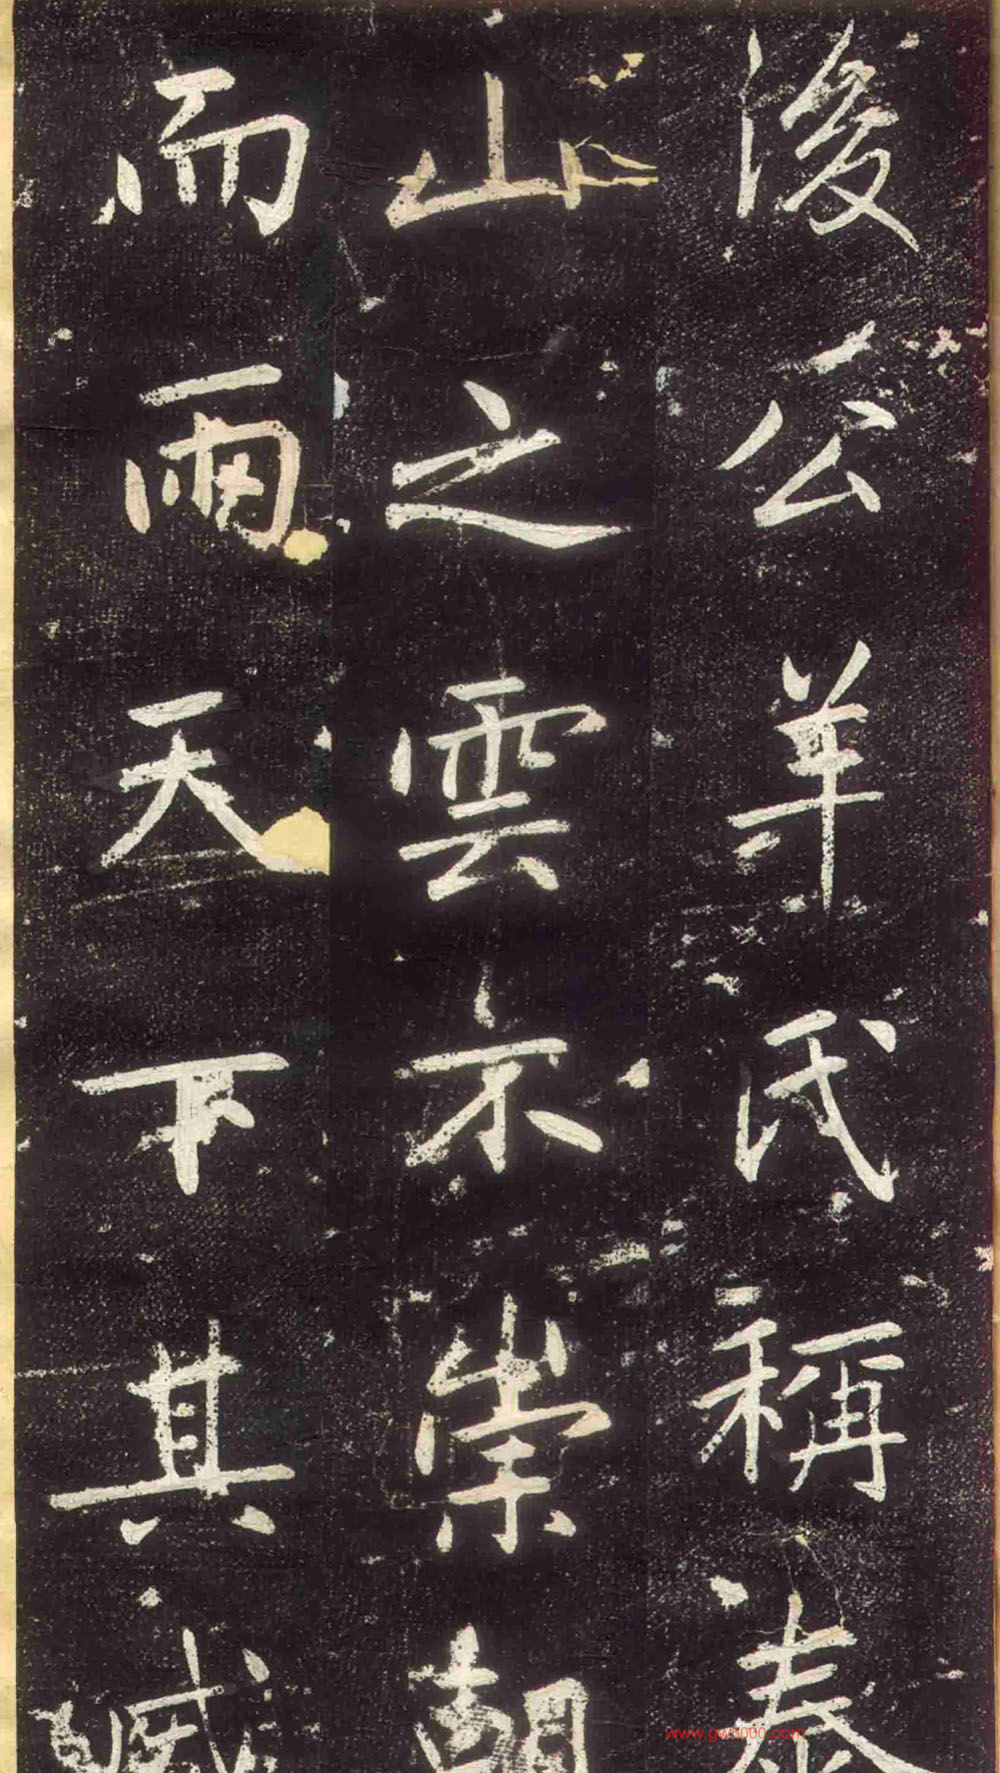 後公羊氏稱泰
山之雲不崇朝
而雨天下其臧
www.gw3000.com